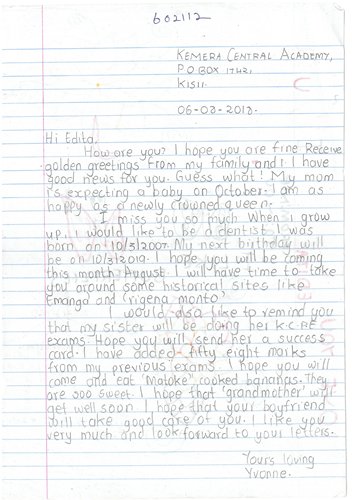 602112
KEMERA CENTRAL ACADEMY,
P.O BOX 17421
KISII.
06-08-2018.
Hi Edita,
How are you? I hope you are fine Receive
golden greetings from my family and I. I have
good news for you. Guess what! My mom
is expecting a baby on October. I am as
happy as a newly crowned queen.
I miss you so much When I grow
up, I would like to be a dentist I was
born on 10/3/2007. My next birthday will
be on 10/3/2019. I hope you will be coming
this month August. I will have time to take
you around some historical sites like
Emanga and
I would also like to remind you
that my sister will be doing her K.C.P.E
exams. Hope you will send her a success
card. I have added fifty eight marks
from my previous exams. I hope you will
come and eat "Matoke" cooked bananas. They
are soo sweet. I hope that 'grandmother' will
get well soon I hope that your boyfriend
will take good care of you. I like you
very much and look forward to your letters.
Yours loving
Yvonne.